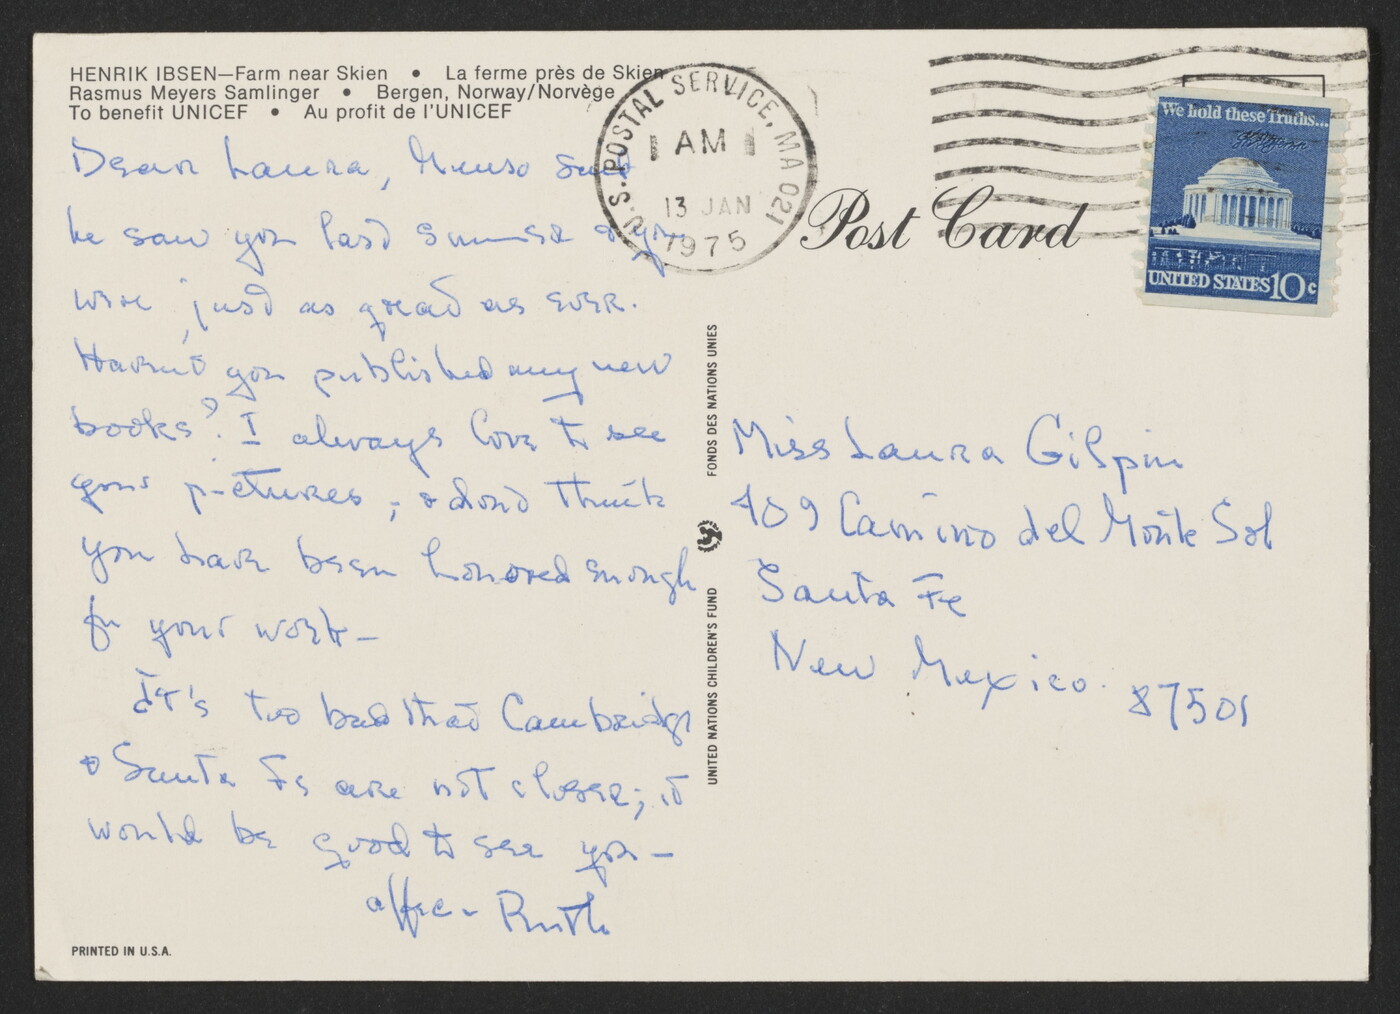 HENRIK IBSEN—Farm near Skien • La ferme près de Skien
Rasmus Meyers Samlinger • Bergen, Norway/Norvège
To benefit UNICEF • Au profit de l'UNICEF
Dear Laura, said
he saw you last summer & you
were just as great as ever.
Haven't you published any new
books? I always love to see
your pictures, & don't think
you have been honored enough
for your work—
It's too bad that Cambridge
& Santa Fe are not closer; it
would be good to see you—
affec- Ruth
PRINTED IN U.S.A.
UNITED NATIONS CHILDREN'S FUND FONDS DES NATIONS UNIES
U.S. POSTAL SERVICE, MA 021
AM
13 JAN
1975
Post Card
We hold these Truths...
UNITED STATES 10c
Miss Laura Gilpin
409 Camino del Monte Sol
Santa Fe
New Mexico 87501